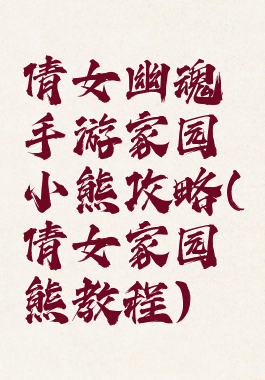 倩女幽魂
手游家园
小熊攻略(
倩女家园
熊教程)